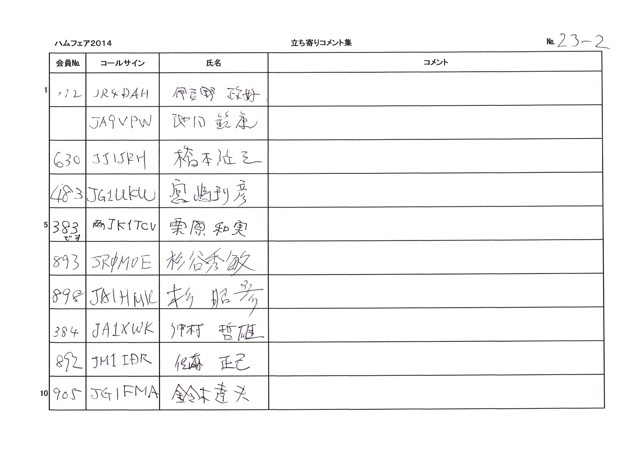 ハムフェア2014 立ち寄りコメント集 No. 23-2
会員No. コールサイン 氏名 コメント
1 112 JR4DAH 伊豆野 政好
JA9VPW 池田 鉱康
630 JJ1JRH 橋本
483 JG1UKW 宮嶋利彦
5 383です JK1TCV 栗原 和実
893 JR0MOE 杉谷秀敏
898 JA1HMK 杉 昭彦
384 JA1XWK 仲村 哲雄
892 JM1IDR 佐藤 正己
10 905 JG1FMA 鈴木達夫